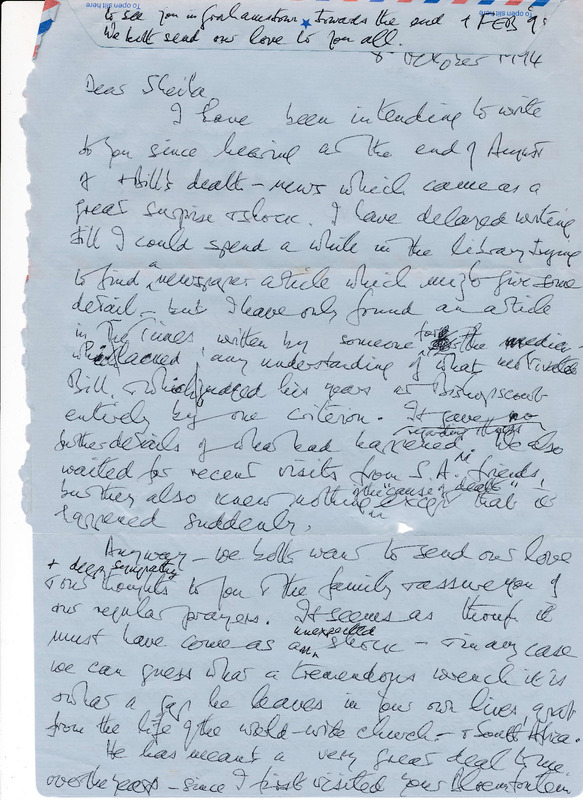 To open slit here
To open slit here
to see you in Grahamstown towards the end of FEB 95
We both send our love to you all.
8 October 1994
Dear Sheila,
I have been intending to write
to you since hearing at the end of August
of Bill's death – news which came as a
great surprise & shock. I have delayed writing
till I could spend a while in the library trying
to find a newspaper article which might give some
detail – but I have only found an article
in The Times written by someone the media –
which lacked any understanding of what motivated
Bill, & which judged his years at Bishopscourt
entirely by one criterion. It gave no
further details of what had happened. We also
waited for recent visits from S.A. friends,
but they also knew nothing the "cause of death" except that it
happened suddenly.
Anyway – we both want to send our love
+ deep sympathy
& our thoughts to you & the family & assure you of
our regular prayers. It seems as though it
must have come as an unexpected shock – & in any case
we can guess what a tremendous wrench it is &
what a gap he leaves in your own lives, & apart
from the life of the world-wide church – & South Africa.
He has meant a very great deal to me
over the years – since I first visited your Bloemfontein